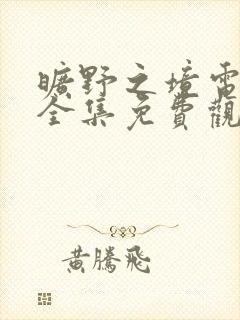 曠野之境電
全集免費觀
黃騰飛